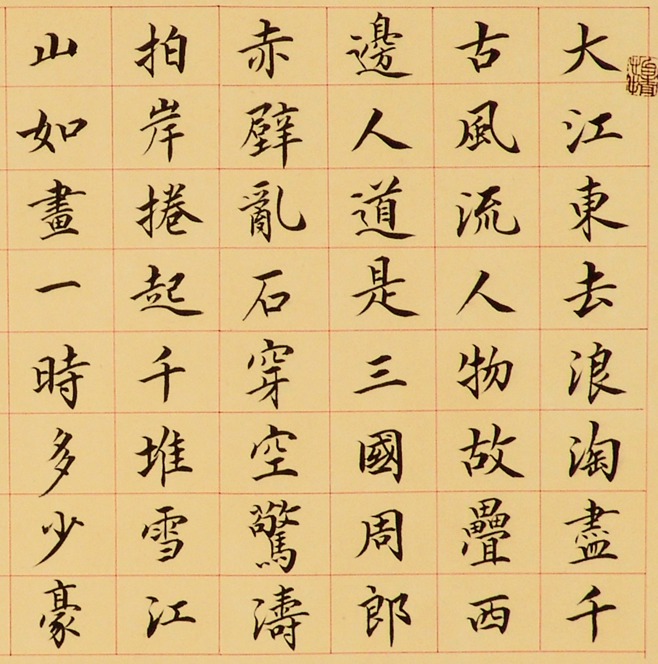 大江東去浪淘盡千
古風流人物故疊西
邊人道是三國周郎
赤壁亂石穿空驚濤
拍岸捲起千堆雪江
山如畫一時多少豪